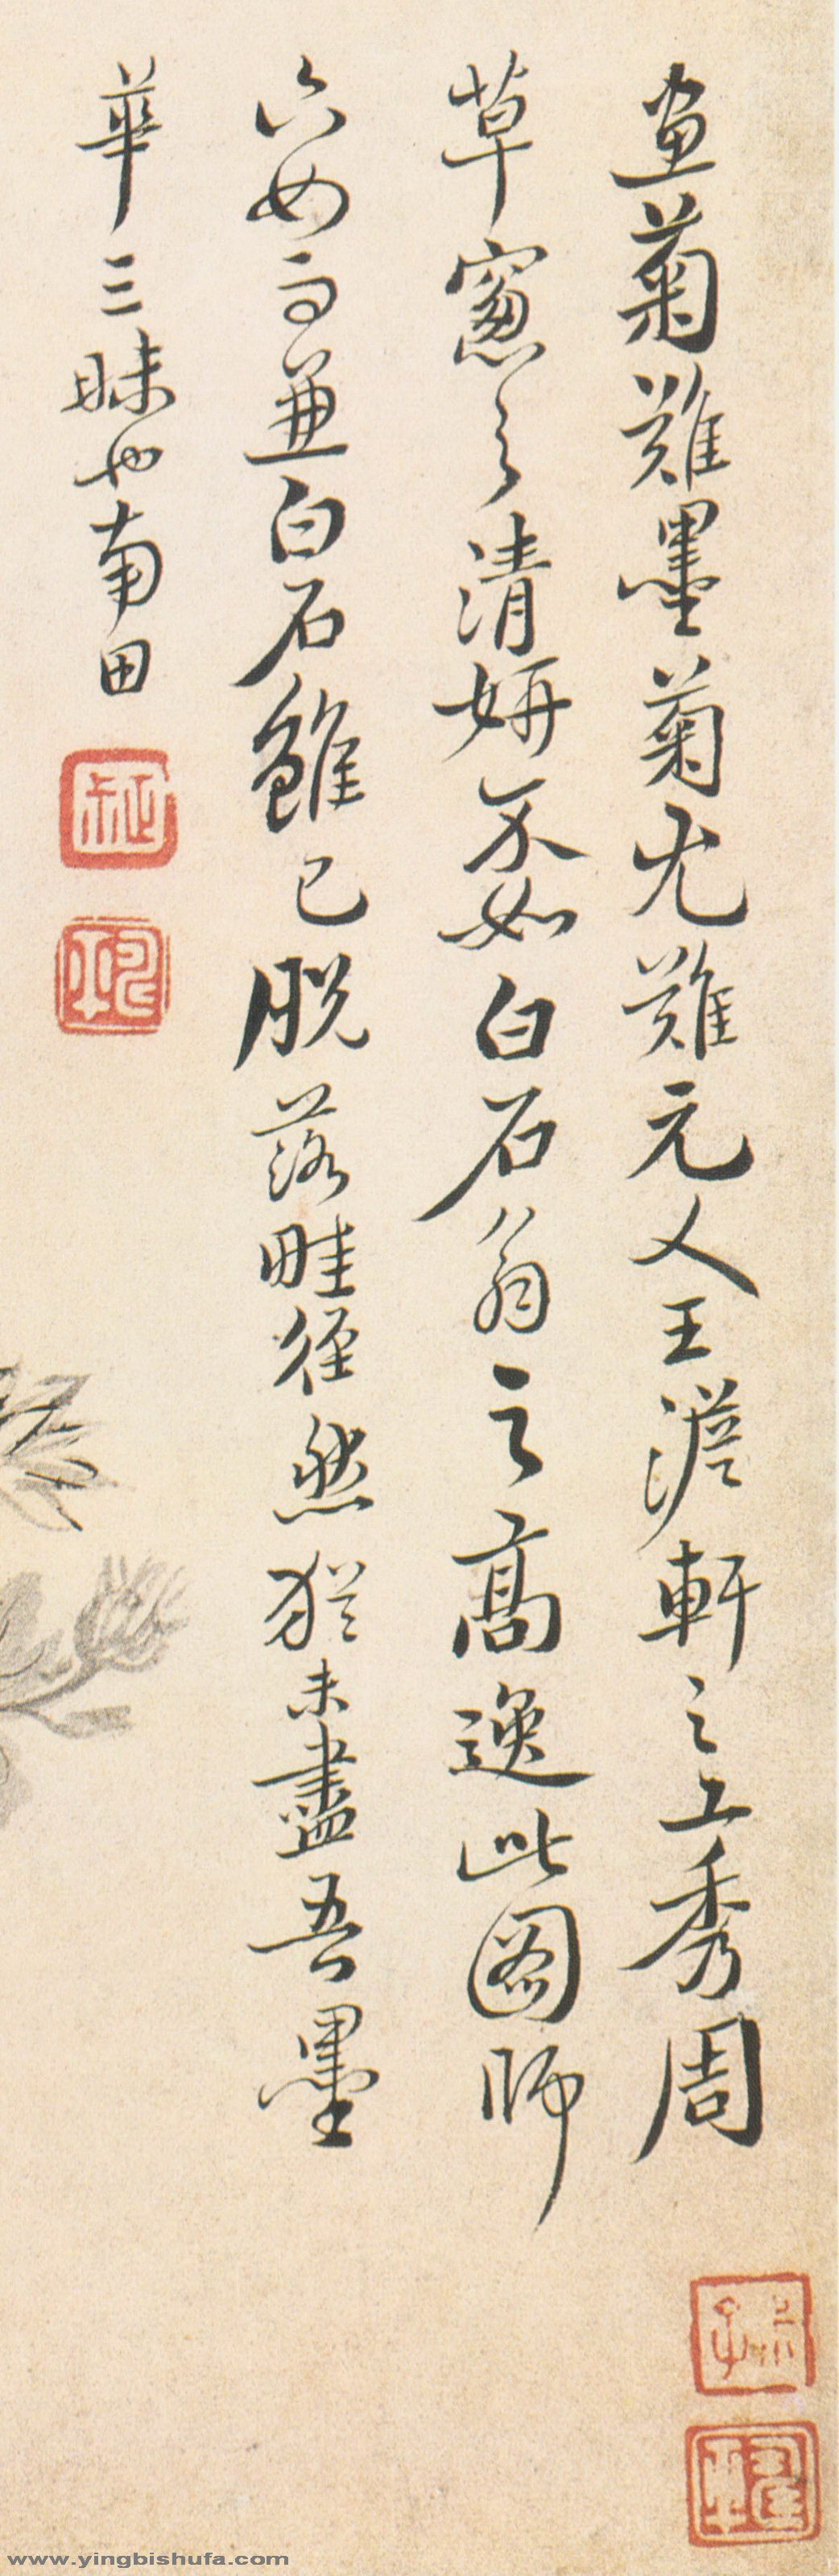 画菊難墨菊尤難元人王澹軒之工秀周
草窻之清妍不如白石翁之高逸此圖師
六如而兼白石雖已脫落畦徑然猶未盡吾墨
華三昧也南田
www.yingbishufa.com